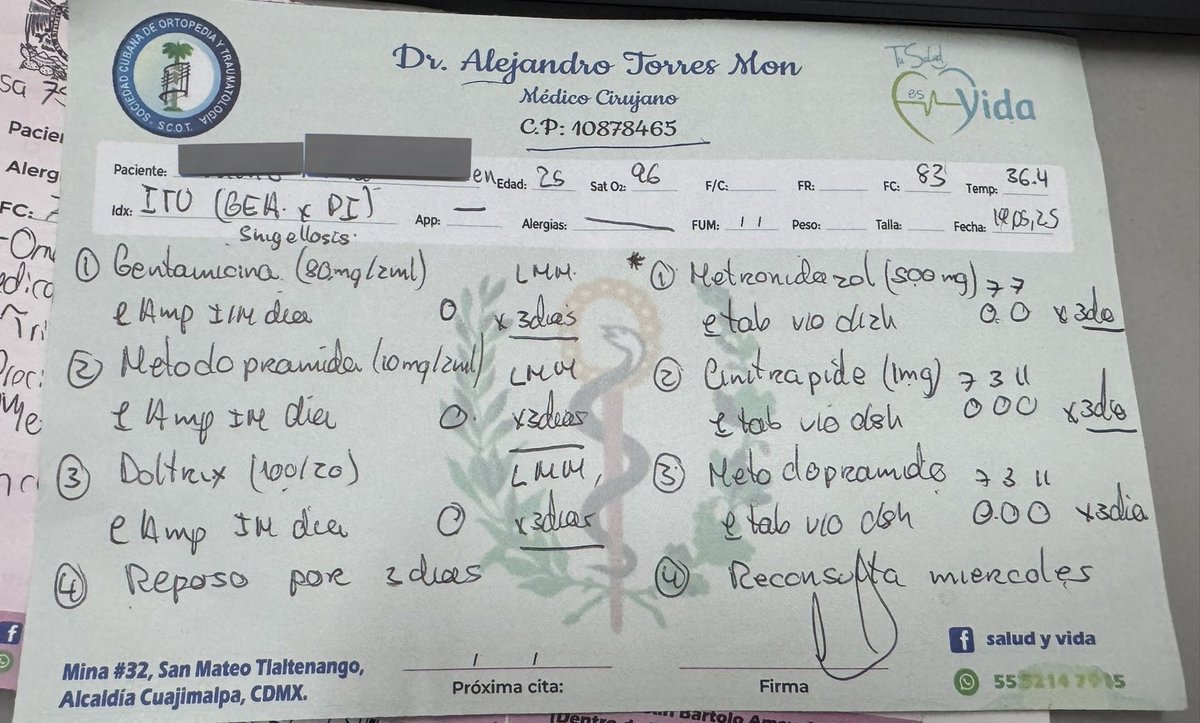 SOCIEDAD CUBANA DE ORTOPEDIA Y TRAUMATOLOGÍA
S.C.O.T.
Dr. Alejandro Torres Mon
Médico Cirujano
C.P: 10878465
Tu Salud
es
Vida
Paciente: Edad: 25 Sat O2: 96 F/C: FR: FC: 83 Temp: 36.4
Idx: ITU (GEA. x DI) App: — Alergias: — FUM: / / Peso: Talla: Fecha:
Shigellosis.
① Gentamicina (80mg/2ml) LMM.
Amp IM dia 0 x 3dias
② Metodopramida (10mg/2ml) LMM
1 Amp IM dia 0. x3dias
③ Doltrix (100/20) LMM,
Amp IM dia 0 x3dias
④ Reposo por 3 dias
* ① Metronidazol (500mg) 7 7
tab vio 0.0 x 3dia
② Cinitrapide (1mg) 7 3 11
tab vio d8h 000 x3dia
③ Metodopramida 7 3 11
tab vio d8h 0.00 x3dia
④ Reconsulta miercoles
Mina #32, San Mateo Tlaltenango,
Alcaldía Cuajimalpa, CDMX.
/ /
Próxima cita:
Firma
salud y vida
55
Pacien
Alerg
FC: